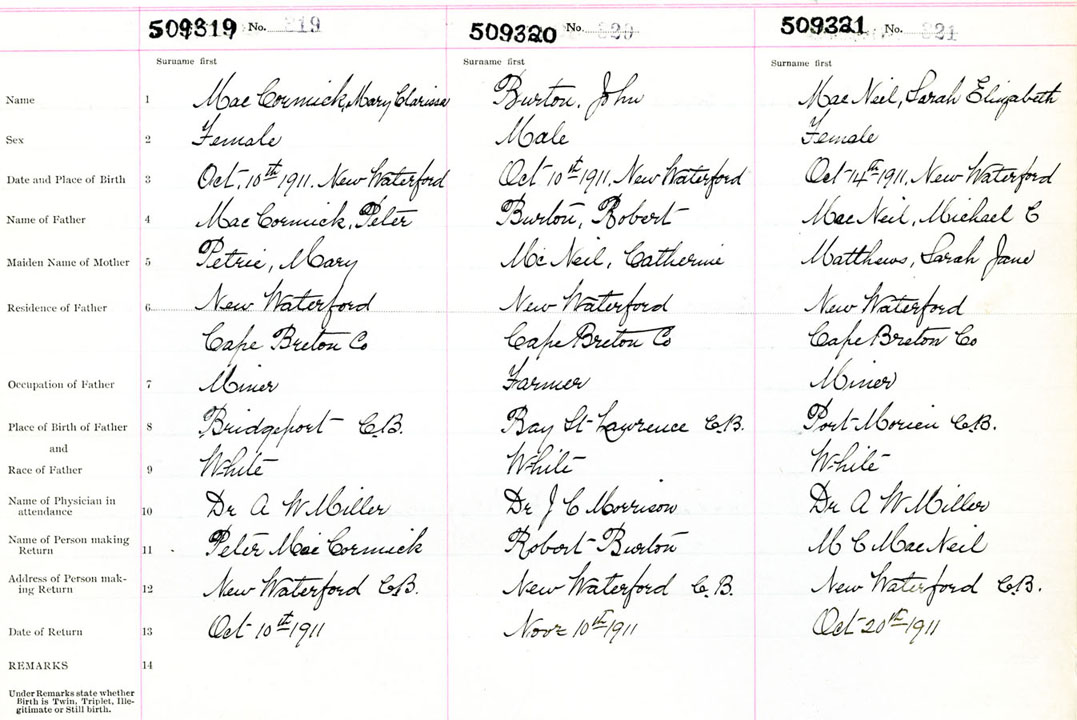 509319 No. 319 509320 No. 320 509321 No. 321
Surname first Surname first Surname first
Name 1 Mac Cormick, Mary Clarissa Burton, John Mac Neil, Sarah Elizabeth
Sex 2 Female Male Female
Date and Place of Birth 3 Oct. 10th 1911. New Waterford Oct 10th 1911. New Waterford Oct 14th 1911. New Waterford
Name of Father 4 Mac Cormick, Peter Burton, Robert Mac Neil, Michael C
Maiden Name of Mother 5 Petrie, Mary Mc Neil, Catherine Matthews, Sarah Jane
Residence of Father 6 New Waterford New Waterford New Waterford
Cape Breton Co Cape Breton Co Cape Breton Co
Occupation of Father 7 Miner Farmer Miner
Place of Birth of Father 8 Bridgeport C.B. Bay St Lawrence C.B. Port Morien C.B.
and
Race of Father 9 White White White
Name of Physician in
attendance 10 Dr A W Miller Dr J C Morrison Dr A W Miller
Name of Person making
Return 11 Peter Mac Cormick Robert Burton M C Mac Neil
Address of Person mak-
ing Return 12 New Waterford C.B. New Waterford C.B. New Waterford C.B.
Date of Return 13 Oct 10th 1911 Nov 10th 1911 Oct 20th 1911
REMARKS 14
Under Remarks state whether
Birth is Twin, Triplet, Ille-
gitimate or Still birth.